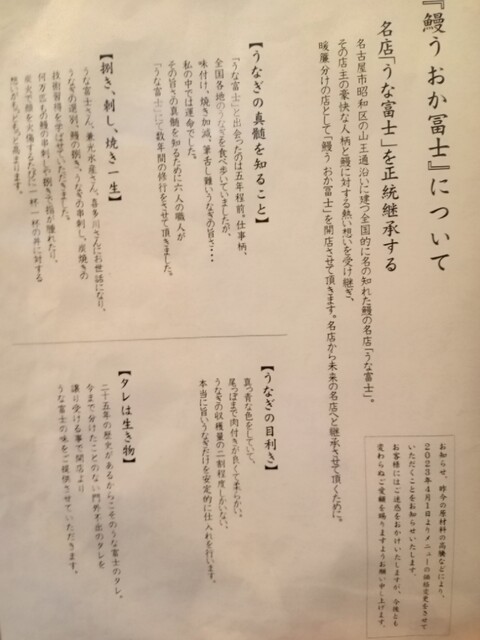 『鰻う おか冨士』について
名店「うな冨士」を正統継承する
名古屋市昭和区の山王通沿いに建つ全国的に名の知れた鰻の名店「うな冨士」。
その店主の豪快な人柄と鰻に対する熱い想いを受け継ぎ、
暖簾分けの店として「鰻う おか冨士」を開店させて頂きます。名店から未来の名店へと継承させて頂くために。
お知らせ、昨今の原材料の高騰などにより、
2023年4月1日よりメニューの価格変更をさせて
いただくことをお知らせいたします。
お客様にはご迷惑をおかけいたしますが、今後とも
変わらぬご愛顧を賜りますようお願い申し上げます。
【うなぎの真髄を知ること】
「うな冨士」と出会ったのは五年程前。仕事柄、
全国各地のうなぎを食べ歩いていましたが、
味付け、焼き加減、筆舌し難いうなぎの旨さ・・・
私の中では運命でした。
その旨さの真髄を知るために六人の職人が
「うな冨士」にて数年間の修行をさせて頂きました。
【捌き、刺し、焼き一生】
うな冨士さん、兼光水産さん、喜多川さんにお世話になり、
うなぎの選別、鰻の捌き、うなぎの串刺し、炭焼きの
技術習得を学ばせていただきました。
何万匹もの鰻の串刺しや捌きで指が腫れたり、
炭火で顔を火傷するたびに一杯一杯の丼に対する
想いがもっともっと高まります。
【うなぎの目利き】
真っ青な色をしていて、
尾っぽまで肉付きが良くて柔らかい。
うなぎの収穫量の二割程度しかいない、
本当に旨いうなぎだけを安定的に仕入れを行います。
【タレは生き物】
二十五年の歴史があるからこそのうな冨士のタレ。
今まで分けたことのない門外不出のタレを
譲り受ける事で開店より
うな冨士の味をご提供させていただきます。